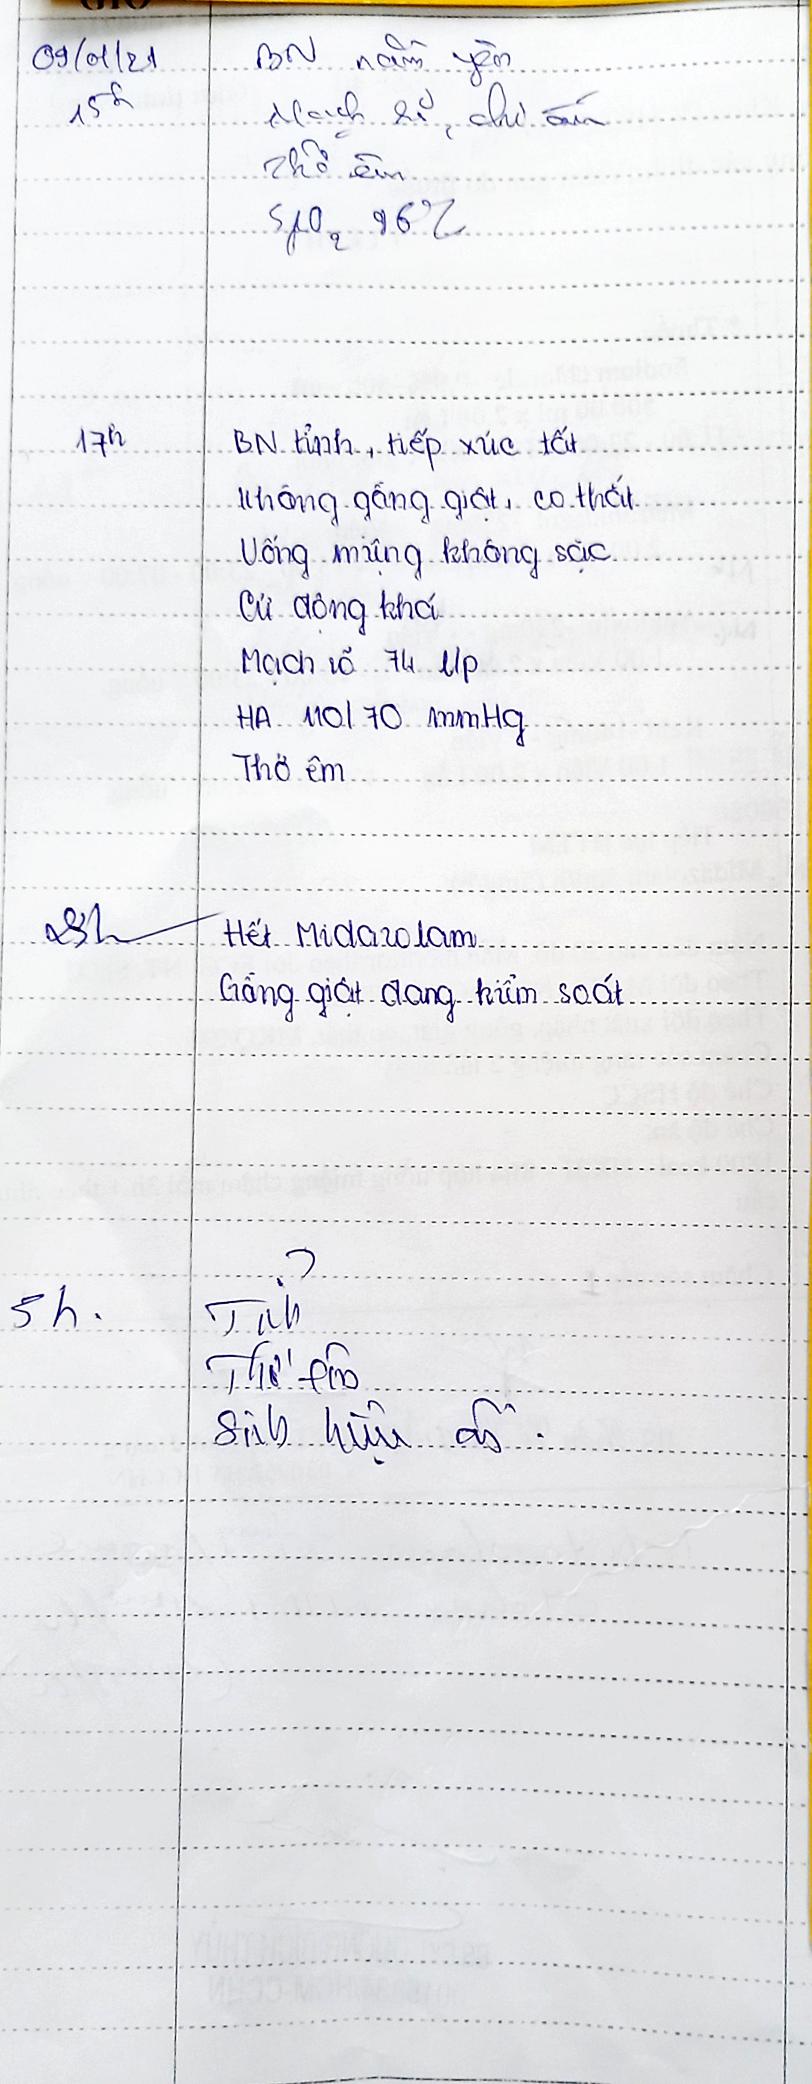 GIỜ
09/01/21 BN nằm yên
15h Mạch rõ, chi ấm
Thở êm
SpO2 96%
17h BN tỉnh, tiếp xúc tốt
Không gồng giật, co thắt
Uống miệng không sặc
Cử động khá
Mạch rõ 74 l/p
HA 110/70 mmHg
Thở êm
Hết Midazolam
Gồng giật đang kiểm soát
5h. Tỉnh
Thở êm
Sinh hiệu ổn.